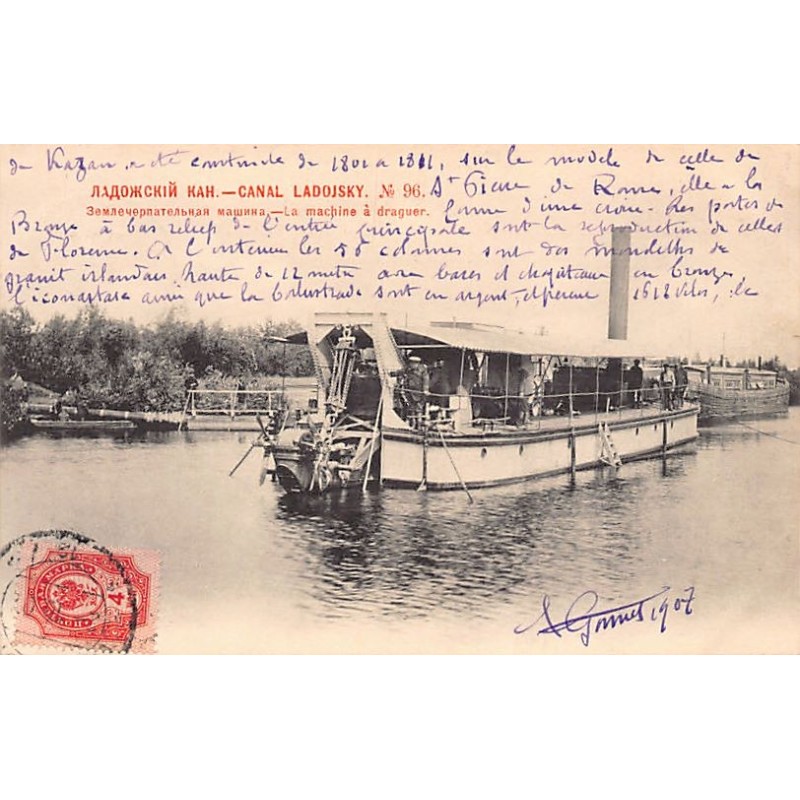 de Kazan, a été construite de 1801 a 1811, sur le modèle de celle de
ЛАДОЖСКІЙ КАН.—CANAL LADOJSKY. № 96.
St Pierre de Rome, elle a la
Землечерпательная машина.—La machine à draguer.
forme d'une croix. Les portes de
Bronze à bas relief de l'entrée principale sont la reproduction de celles
de Florence. A l'interieur les 56 colonnes sont des monolithes de
granit irlandais, haute de 12 metres avec bases et chapiteaux en bronze,
l'iconastase ainsi que la balustrade sont en argent, et pesent 1618 kilos, le
ПОЧТОВАЯ МАРКА
4
1907